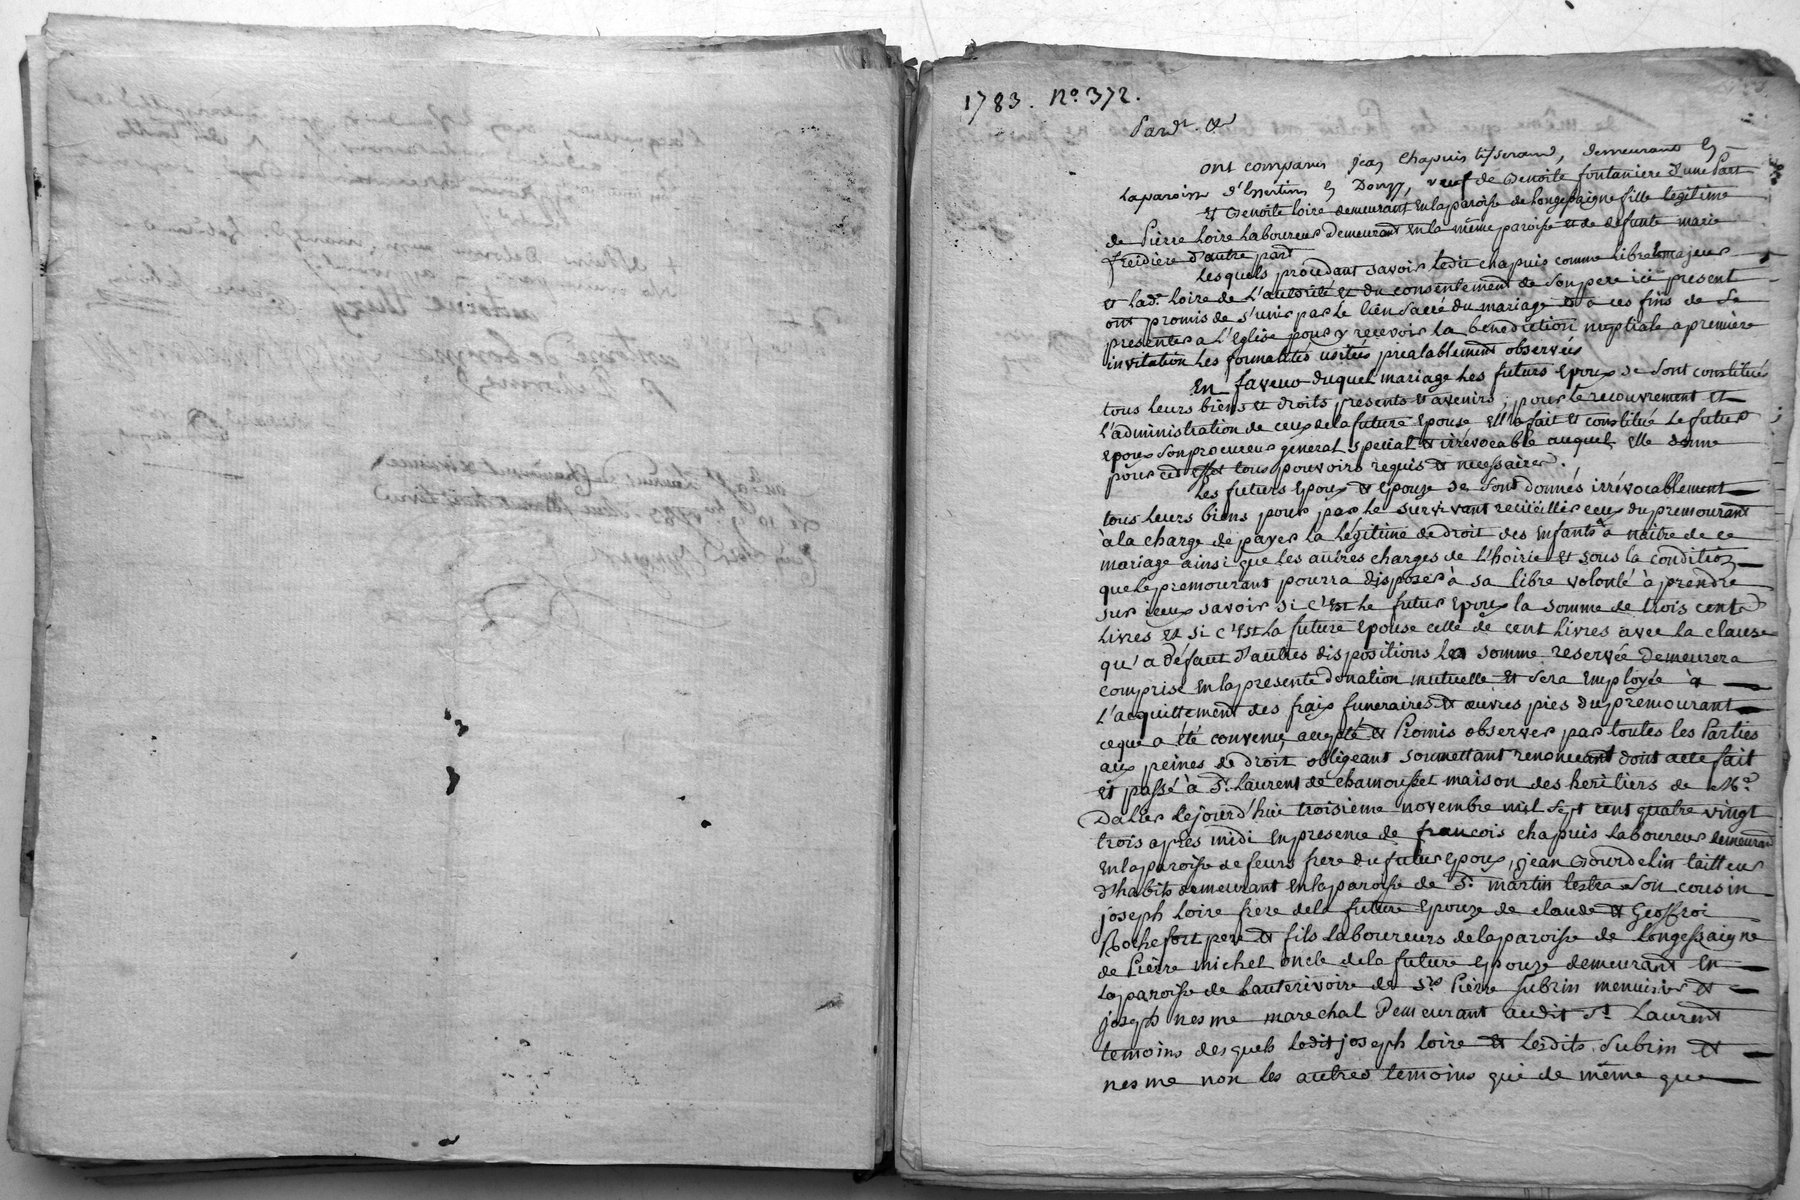 1783. No. 372.
Pard.t &
ont comparu jean Chapuis tisserand, demeurant En
la paroisse d'Essertines En Donzy, veuf de Benoite fontaniere d'une Part
Et Benoite Loire demeurant En la paroisse de Longessaigne fille legitime
de Pierre Loire Laboureur demeurant En la même paroisse et de defunte marie
freidiere d'autre part
Lesquels procedant savoir Ledit chapuis comme Libre & majeur
et lad.e Loire de L'autorité et du consentement de son pere ici present
ont promis de s'unir par Le lien sacré du mariage & a ces fins de se
presenter a L'Eglise pour y recevoir la benediction nuptiale a premiere
invitation Les formalités usitées prealablement observées
En faveur duquel mariage Les futurs Epoux se sont constitué
tous leurs biens et droits presents et avenirs, pour Le recouvrement et
L'administration de ceux de la future Epouse Elle a fait et constitué Le futur
Epoux son procureur general special & irrévocable auquel Elle donne
pour cet effet tous pouvoirs requis & necessaires.
Les futurs Epoux & Epouse se sont donnés irrévocablement
tous leurs biens pour par Le survivant recüeillir ceux du premourant
à la charge de payer la Légitime de droit des Enfants à naitre de ce
mariage ainsi que les autres charges de L'hoirie et sous la condition
que Le premourant pourra disposer à sa libre volonté à prendre
sur iceux savoir si c'Est Le futur Epoux la somme de trois cents
Livres et si c'Est La future Epouse celle de cent Livres avec la clause
qu'a défaut d'autres dispositions La somme reservée demeurera
comprise En la presente donation mutuelle et sera Employée à
L'acquittement des frais funeraires & œuvres pies du premourant
ce que a été convenu, accepté & Promis observer par toutes les Parties
aux peines de droit obligeant soumettant renonceant dont acte fait
Et passé à S.t Laurent de chamousset maison des heritiers de M.e
Dalier Le jourd'hui troisieme novembre mil sept cent quatre vingt
trois après midi En presence de francois chapuis Laboureur demeurant
En la paroisse de feurs frere du futur Epoux, jean Gourdelin tailleur
d'habits demeurant En la paroisse de S.t martin lestra son cousin
joseph Loire frere de la future Epouze de claude & Geoffroi
Rochefort pere & fils Laboureurs de la paroisse de Longessaigne
de Pierre michel oncle de la future Epouze demeurant En
La paroisse de hauterivoire de S.r Pierre subrin menuisier &
joseph nesme marechal Demeurant audit S.t Laurent
temoins desquels Ledit joseph Loire & Lesdits subrin &
nesme non les autres temoins qui de même que